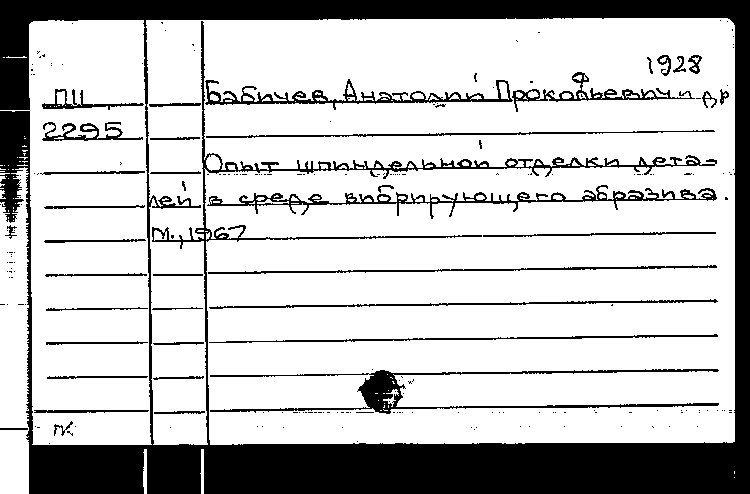 1928
П11 Бабичев, Анатолий Прокофьевич и др
2295
Опыт шпиндельной отделки дета-
лей в среде вибрирующего абразива.
М., 1967